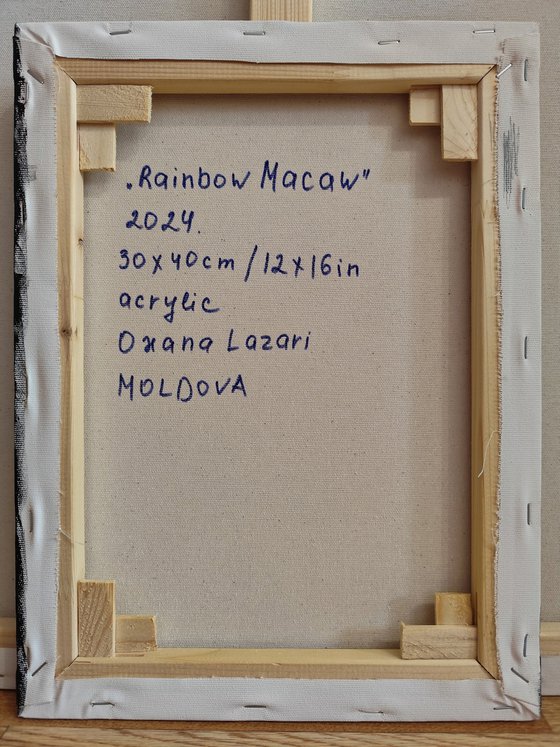 „Rainbow Macaw"
2024.
30x40cm / 12x16in
acrylic
Oxana Lazari
MOLDOVA